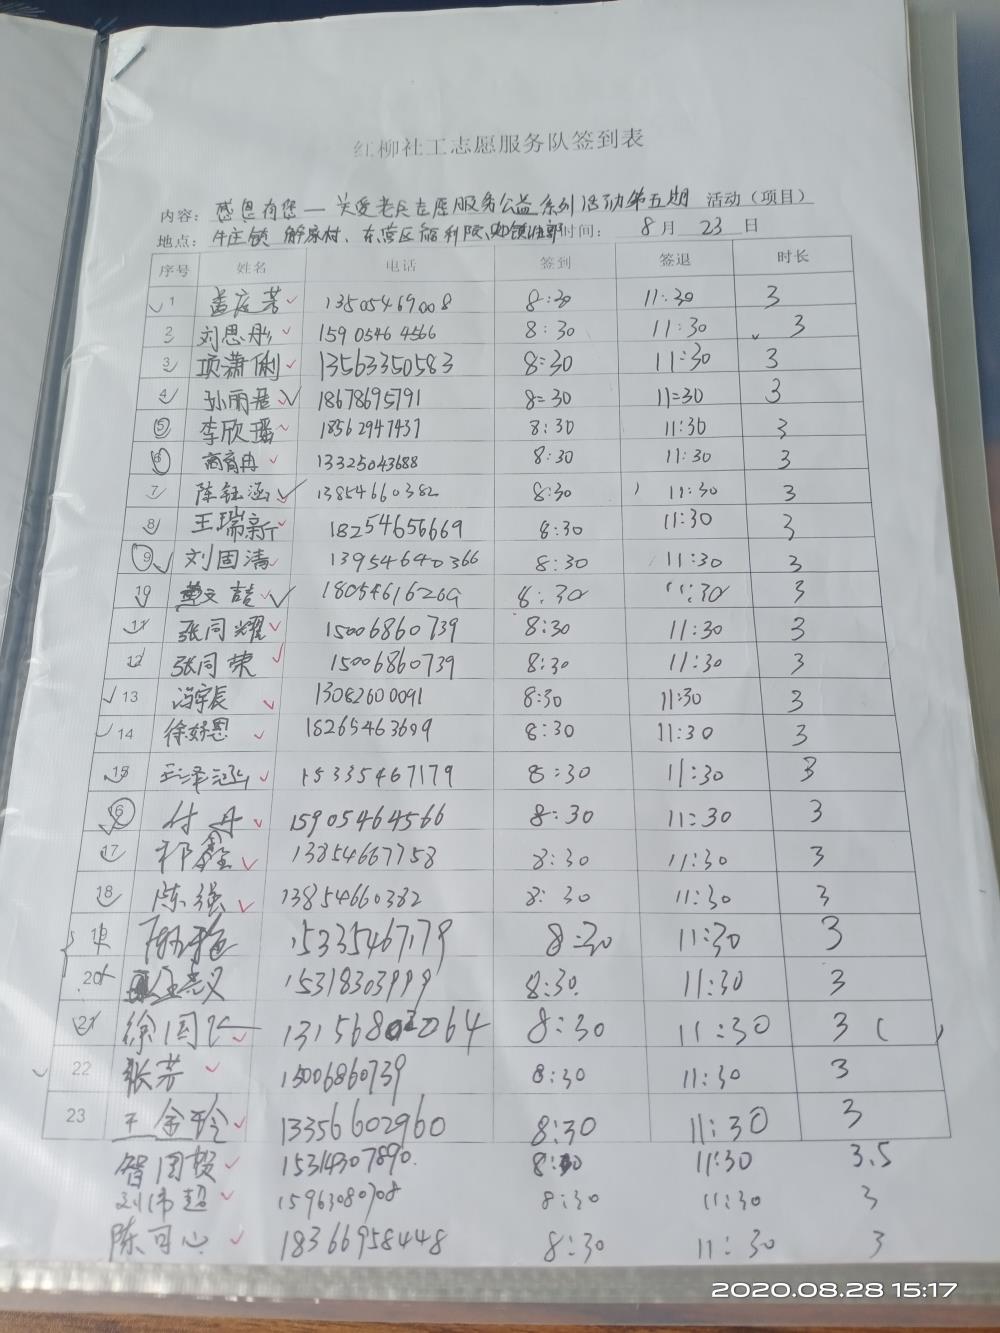 红柳社工志愿服务队签到表
内容：感恩有您—关爱老兵志愿服务公益系列活动第五期 活动（项目）
地点：牛庄镇 解家村、东营区福利院、 时间： 8 月 23 日
序号 姓名 电话 签到 签退 时长
1 孟庆芳 13505469008 8:30 11:30 3
2 刘思彤 15905464566 8:30 11:30 3
3 项潇俐 13563350583 8:30 11:30 3
4 孙雨 18678695791 8=30 11=30 3
5 李欣瑶 18562947437 8:30 11:30 3
6 商育冉 13325043688 8:30 11:30 3
7 陈钰涵 13854660382 8:30 11:30 3
8 王瑞新 18254656669 8:30 11:30 3
9 刘国清 13954640366 8:30 11:30 3
10 文喆 8:30 11:30 3
11 张同耀 15006860739 8:30 11:30 3
12 张同荣 15006860739 8:30 11:30 3
13 冯宇辰 13082600091 8:30 11:30 3
14 徐妤恩 18265463699 8:30 11:30 3
15 王泽涵 15335467179 8:30 11:30 3
16 付丹 15905464566 8:30 11:30 3
17 祁鑫 13854667758 8:30 11:30 3
18 陈强 13854660382 8:30 11:30 3
19 15335467179 8:30 11:30 3
20 15318303999 8:30 11:30 3
21 徐国 8:30 11:30 3
22 张芳 15006860739 8:30 11:30 3
23 王金玲 13356602960 8:30 11:30 3
智国毅 15314307890 8:30 11:30 3.5
刘伟超 15963080708 8:30 11:30 3
陈可心 18366958448 8:30 11:30 3
2020.08.28 15:17